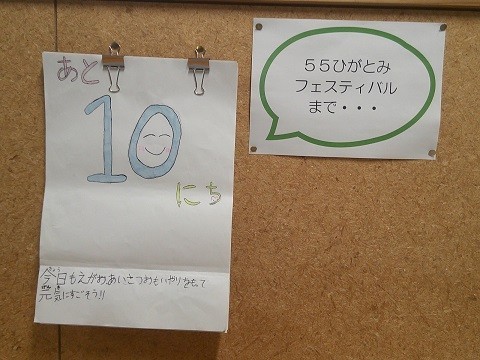 あと
10
にち
今日もえがおあいさつおもいやりをもって
元気にすごそう!!
55ひがとみ
フェスティバル
まで・・・